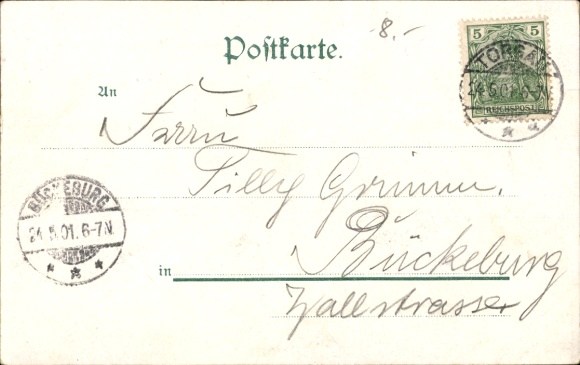 8.-
Postkarte.
5
REICHSPOST
TORGAU
24.5.01.
An
Herrn
Tilly Grimm.
BÜCKEBURG
24.5.01. 6-7N.
in Bückeburg
Wallstrasse